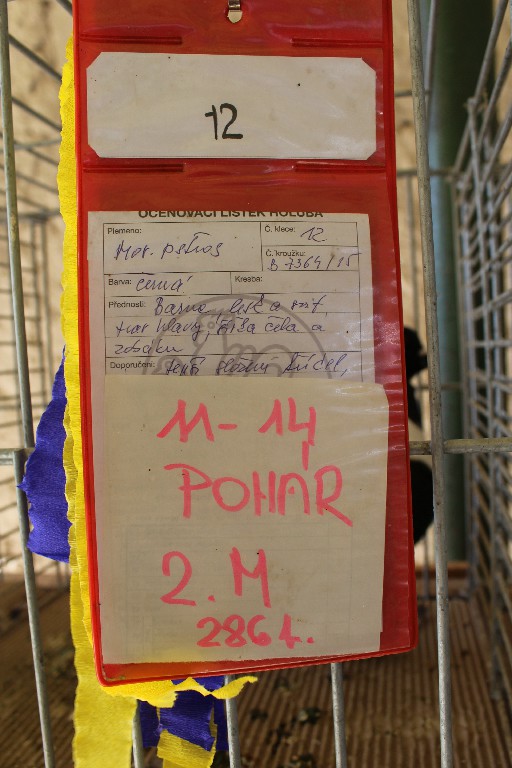 12
OCEŇOVACÍ LÍSTEK HOLUBA
Plemeno: Mor. pštros
Č. klece: 12
Č. kroužku: B 7364/15
Barva: černá
Kresba:
Přednosti: Barva, lesk a
tvar hlavy, šířka čela a
zobáku
Doporučení:
M - 14
POHÁR
2. M
286 h.